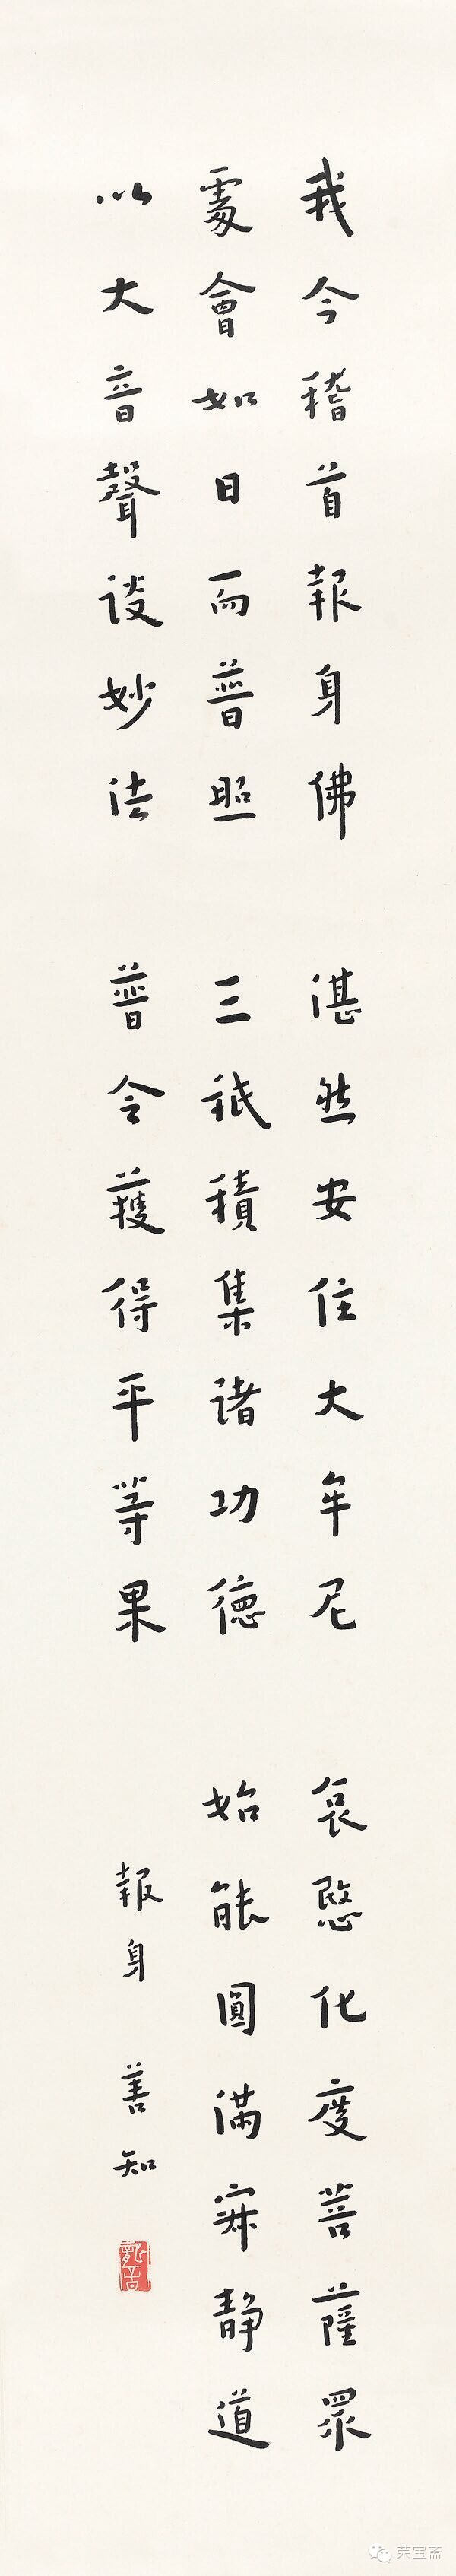 我今稽首報身佛 湛然安住大牟尼 哀愍化度菩薩眾
處會如日而普照 三祇積集諸功德 始能圓滿寂靜道
以大音聲談妙法 普令獲得平等果
報身 善知
龍音
荣宝斋